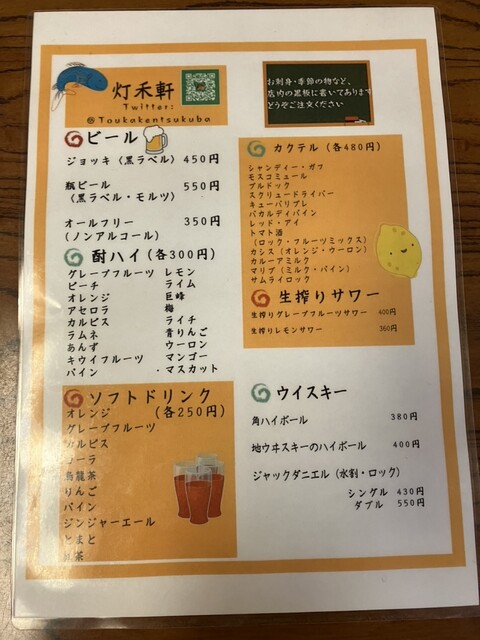 灯禾軒
Twitter:
@Toukakentsukuba
お刺身・季節の物など、
店内の黒板に書いてあります
どうぞご注文ください
ビール
ジョッキ（黒ラベル）450円
瓶ビール 550円
（黒ラベル・モルツ）
オールフリー 350円
（ノンアルコール）
酎ハイ（各300円）
グレープフルーツ レモン
ピーチ ライム
オレンジ 巨峰
アセロラ 梅
カルピス ライチ
ラムネ 青りんご
あんず ウーロン
キウイフルーツ マンゴー
パイン ・マスカット
ソフトドリンク
（各250円）
オレンジ
グレープフルーツ
カルピス
コーラ
烏龍茶
りんご
パイン
ジンジャーエール
とまと
カクテル（各480円）
シャンディー・ガフ
モスコミュール
ブルドック
スクリュードライバー
キューバリブレ
バカルディパイン
レッド・アイ
トマト酒
（ロック・フルーツミックス）
カシス（オレンジ・ウーロン）
カルーアミルク
マリブ（ミルク・パイン）
サムライロック
生搾りサワー
生搾りグレープフルーツサワー 400円
生搾りレモンサワー 360円
ウイスキー
角ハイボール 380円
地ウヰスキーのハイボール 400円
ジャックダニエル（水割・ロック）
シングル 430円
ダブル 550円